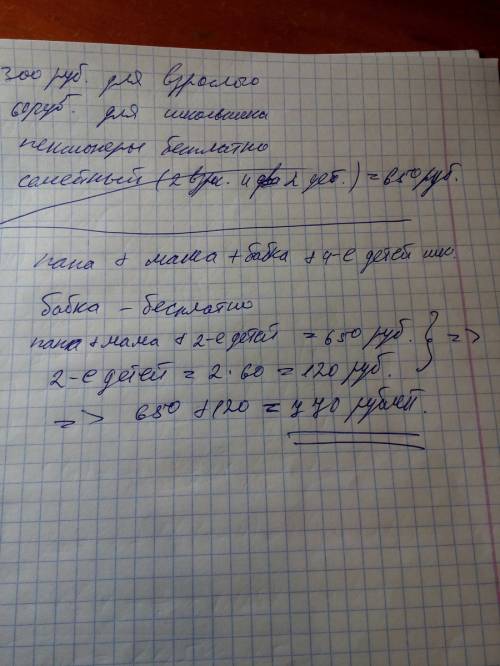 300 руб. для взрослого
60руб. для школьника
пенсионеры бесплатно
семейный (2 взр. и 2 дет.) = 650 руб.
папа + мама + бабка + 4-е детей шк.
бабка - бесплатно
папа + мама + 2-е детей = 650 руб. } =>
2-е детей = 2·60 = 120 руб.
=> 650 + 120 = 770 рублей.